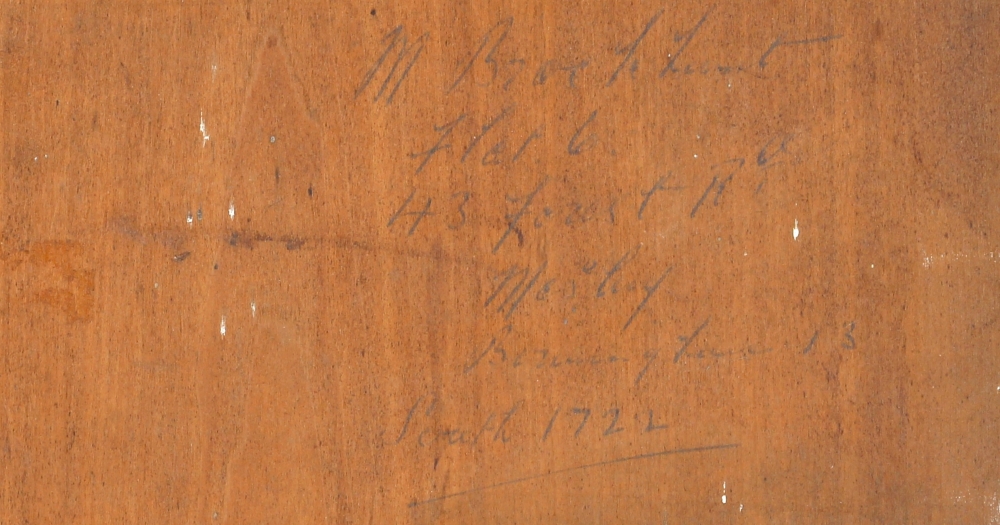 M Brookhurst
Flat 6
43 Forest Rd
Moseley
Birmingham 13
South 1722